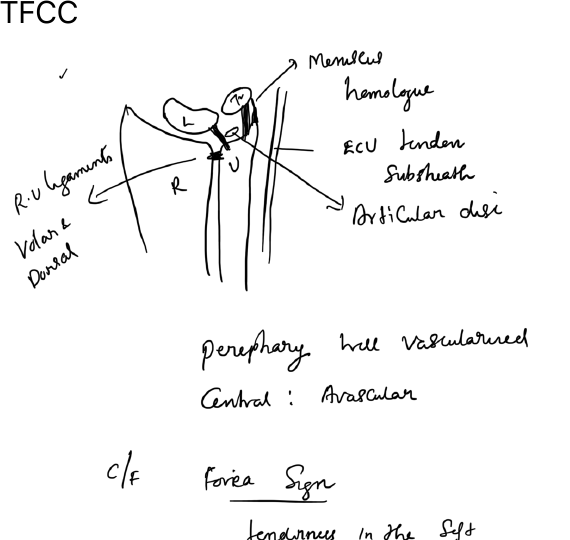 TFCC
Meniscus
homologue
Tr
L
ECU tendon
Subsheath
R-U ligaments
R
U
Volar &
Dorsal
Articular disc
perephary well vascularised
Central : Avascular
C/F Fovea Sign
tenderness in the Soft